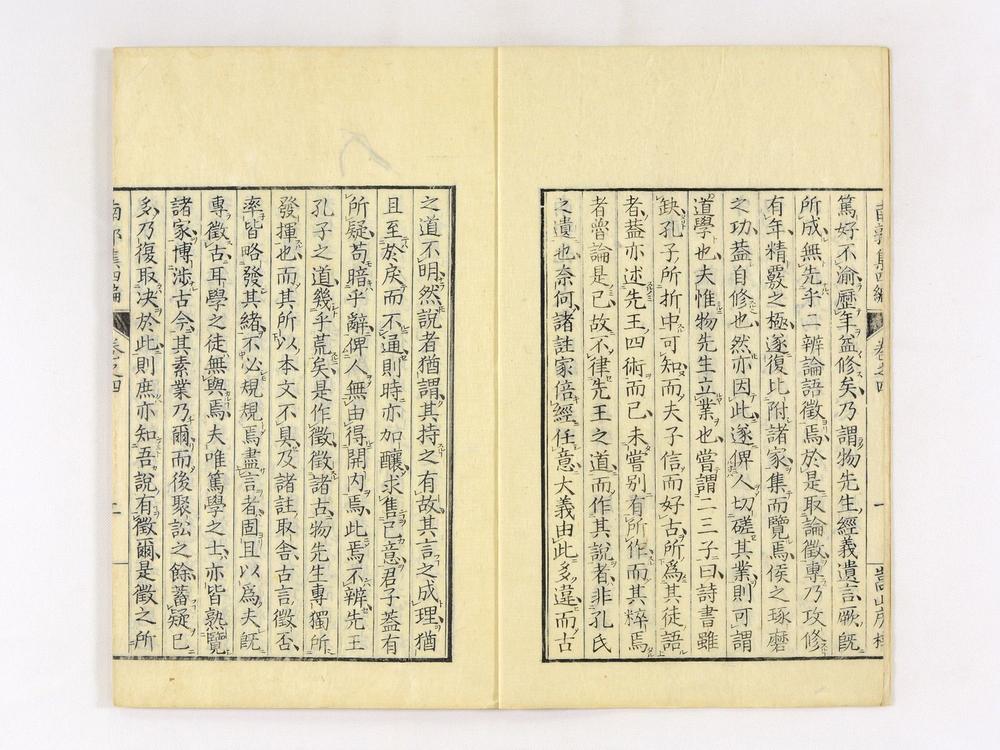 篤好不渝歷年益修矣乃謂物先生經義遺言厥既
所成無先乎二辨論語徵焉於是取論徵專乃攻修
有年精覈之極遂復比附諸家集而覽焉侯之琢磨
之功蓋自修也然亦因此遂俾人切磋其業則可謂
道學也夫惟物先生立業也嘗謂二三子曰詩書雖
缺孔子所折中可知而夫子信而好古所爲其徒語
者蓋亦述先王四術而已未嘗別有所作而其粹焉
者魯論是已故不律先王之道而作其說者非孔氏
之遺也奈何諸註家倍經任意大義由此多違而古
之道不明然說者猶謂其持之有故其言之成理猶
且至於戾而不通則時亦加釀求售己意君子蓋有
所疑苟暗乎辭俾人無由得開內焉此焉不辨先王
孔子之道幾乎荒矣是作徵徵諸古物先生專獨所
發揮也而其所以本文不具及諸註取舍古言徵否
率皆略發其緒不必規規焉盡言者固且以爲夫既
專徵古耳學之徒無與焉夫唯篤學之士亦皆熟覽
諸家博涉古今其素業乃爾而後聚訟之餘蓄疑已
多乃復取決於此則庶亦知吾說有徵爾是徵之所
卷之四